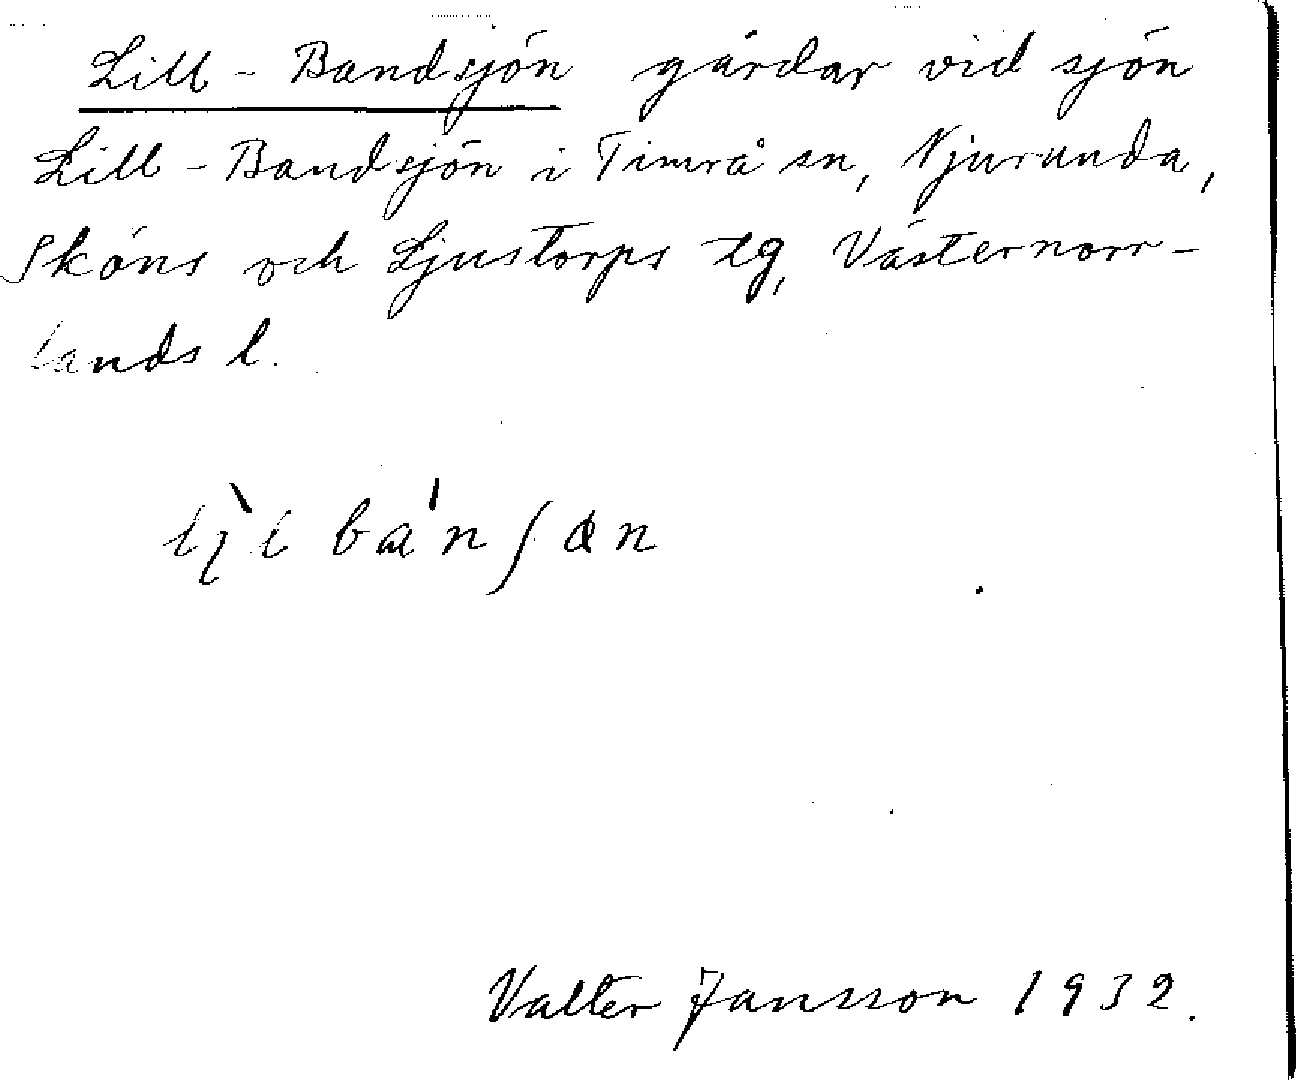 Lill-Bandsjön gårdar vid sjön
Lill-Bandsjön i Timrå sn, Njurunda,
Sköns och Ljustorps tg, Västernorr-
lands l.
Valter Jansson 1932.